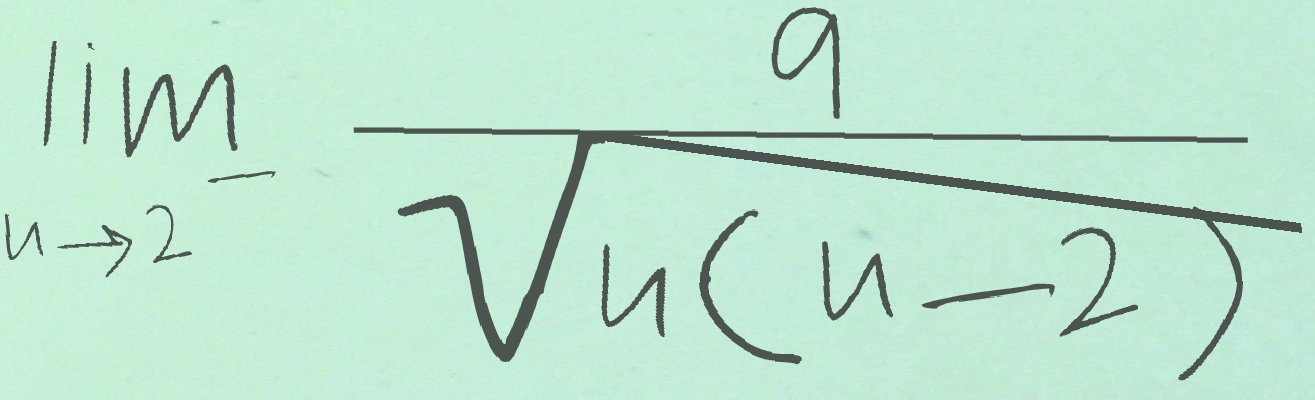 \lim_{u \to 2^-} \frac{9}{\sqrt{u(u-2)}}